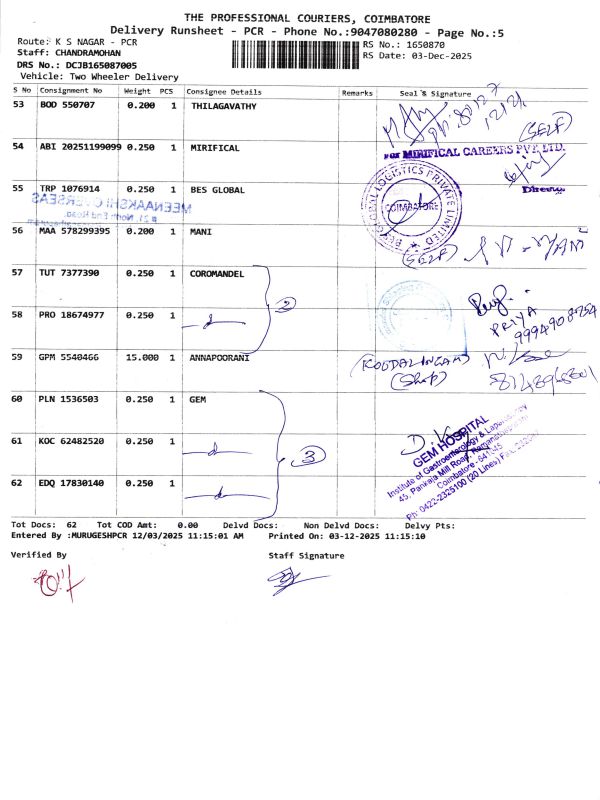 THE PROFESSIONAL COURIERS, COIMBATORE
Delivery Runsheet - PCR - Phone No.:9047080280 - Page No.:5
Route: K S NAGAR - PCR
RS No.: 1650870
Staff: CHANDRAMOHAN
RS Date: 03-Dec-2025
DRS No.: DCJB165087005
Vehicle: Two Wheeler Delivery
S No Consignment No Weight PCS Consignee Details Remarks Seal & Signature
53 BOD 550707 0.200 1 THILAGAVATHY
(SELF)
54 ABI 20251199099 0.250 1 MIRIFICAL
For MIRIFICAL CAREERS PVT. LTD.
Director
55 TRP 1076914 0.250 1 BES GLOBAL
LOGISTICS PRIVATE LIMITED
COIMBATORE
MEENAAKSHI OVERSEAS
# 21, North End Road,
56 MAA 578299395 0.200 1 MANI
(SELF) MANI
57 TUT 7377390 0.250 1 COROMANDEL
2
58 PRO 18674977 0.250 1
PRIYA
9994908254
59 GPM 5540466 15.000 1 ANNAPOORANI
(KOODALINGAM)
(Shop)
60 PLN 1536503 0.250 1 GEM
61 KOC 62482520 0.250 1
3
62 EDQ 17830140 0.250 1
GEM HOSPITAL
Institute of Gastroenterology &
45, Pankaja Mill Road, Ramanathapuram
Coimbatore - 641 045
Ph: 0422-2325100 (20 Lines)
Tot Docs: 62 Tot COD Amt: 0.00 Delvd Docs: Non Delvd Docs: Delvy Pts:
Entered By :MURUGESHPCR 12/03/2025 11:15:01 AM Printed On: 03-12-2025 11:15:10
Verified By Staff Signature